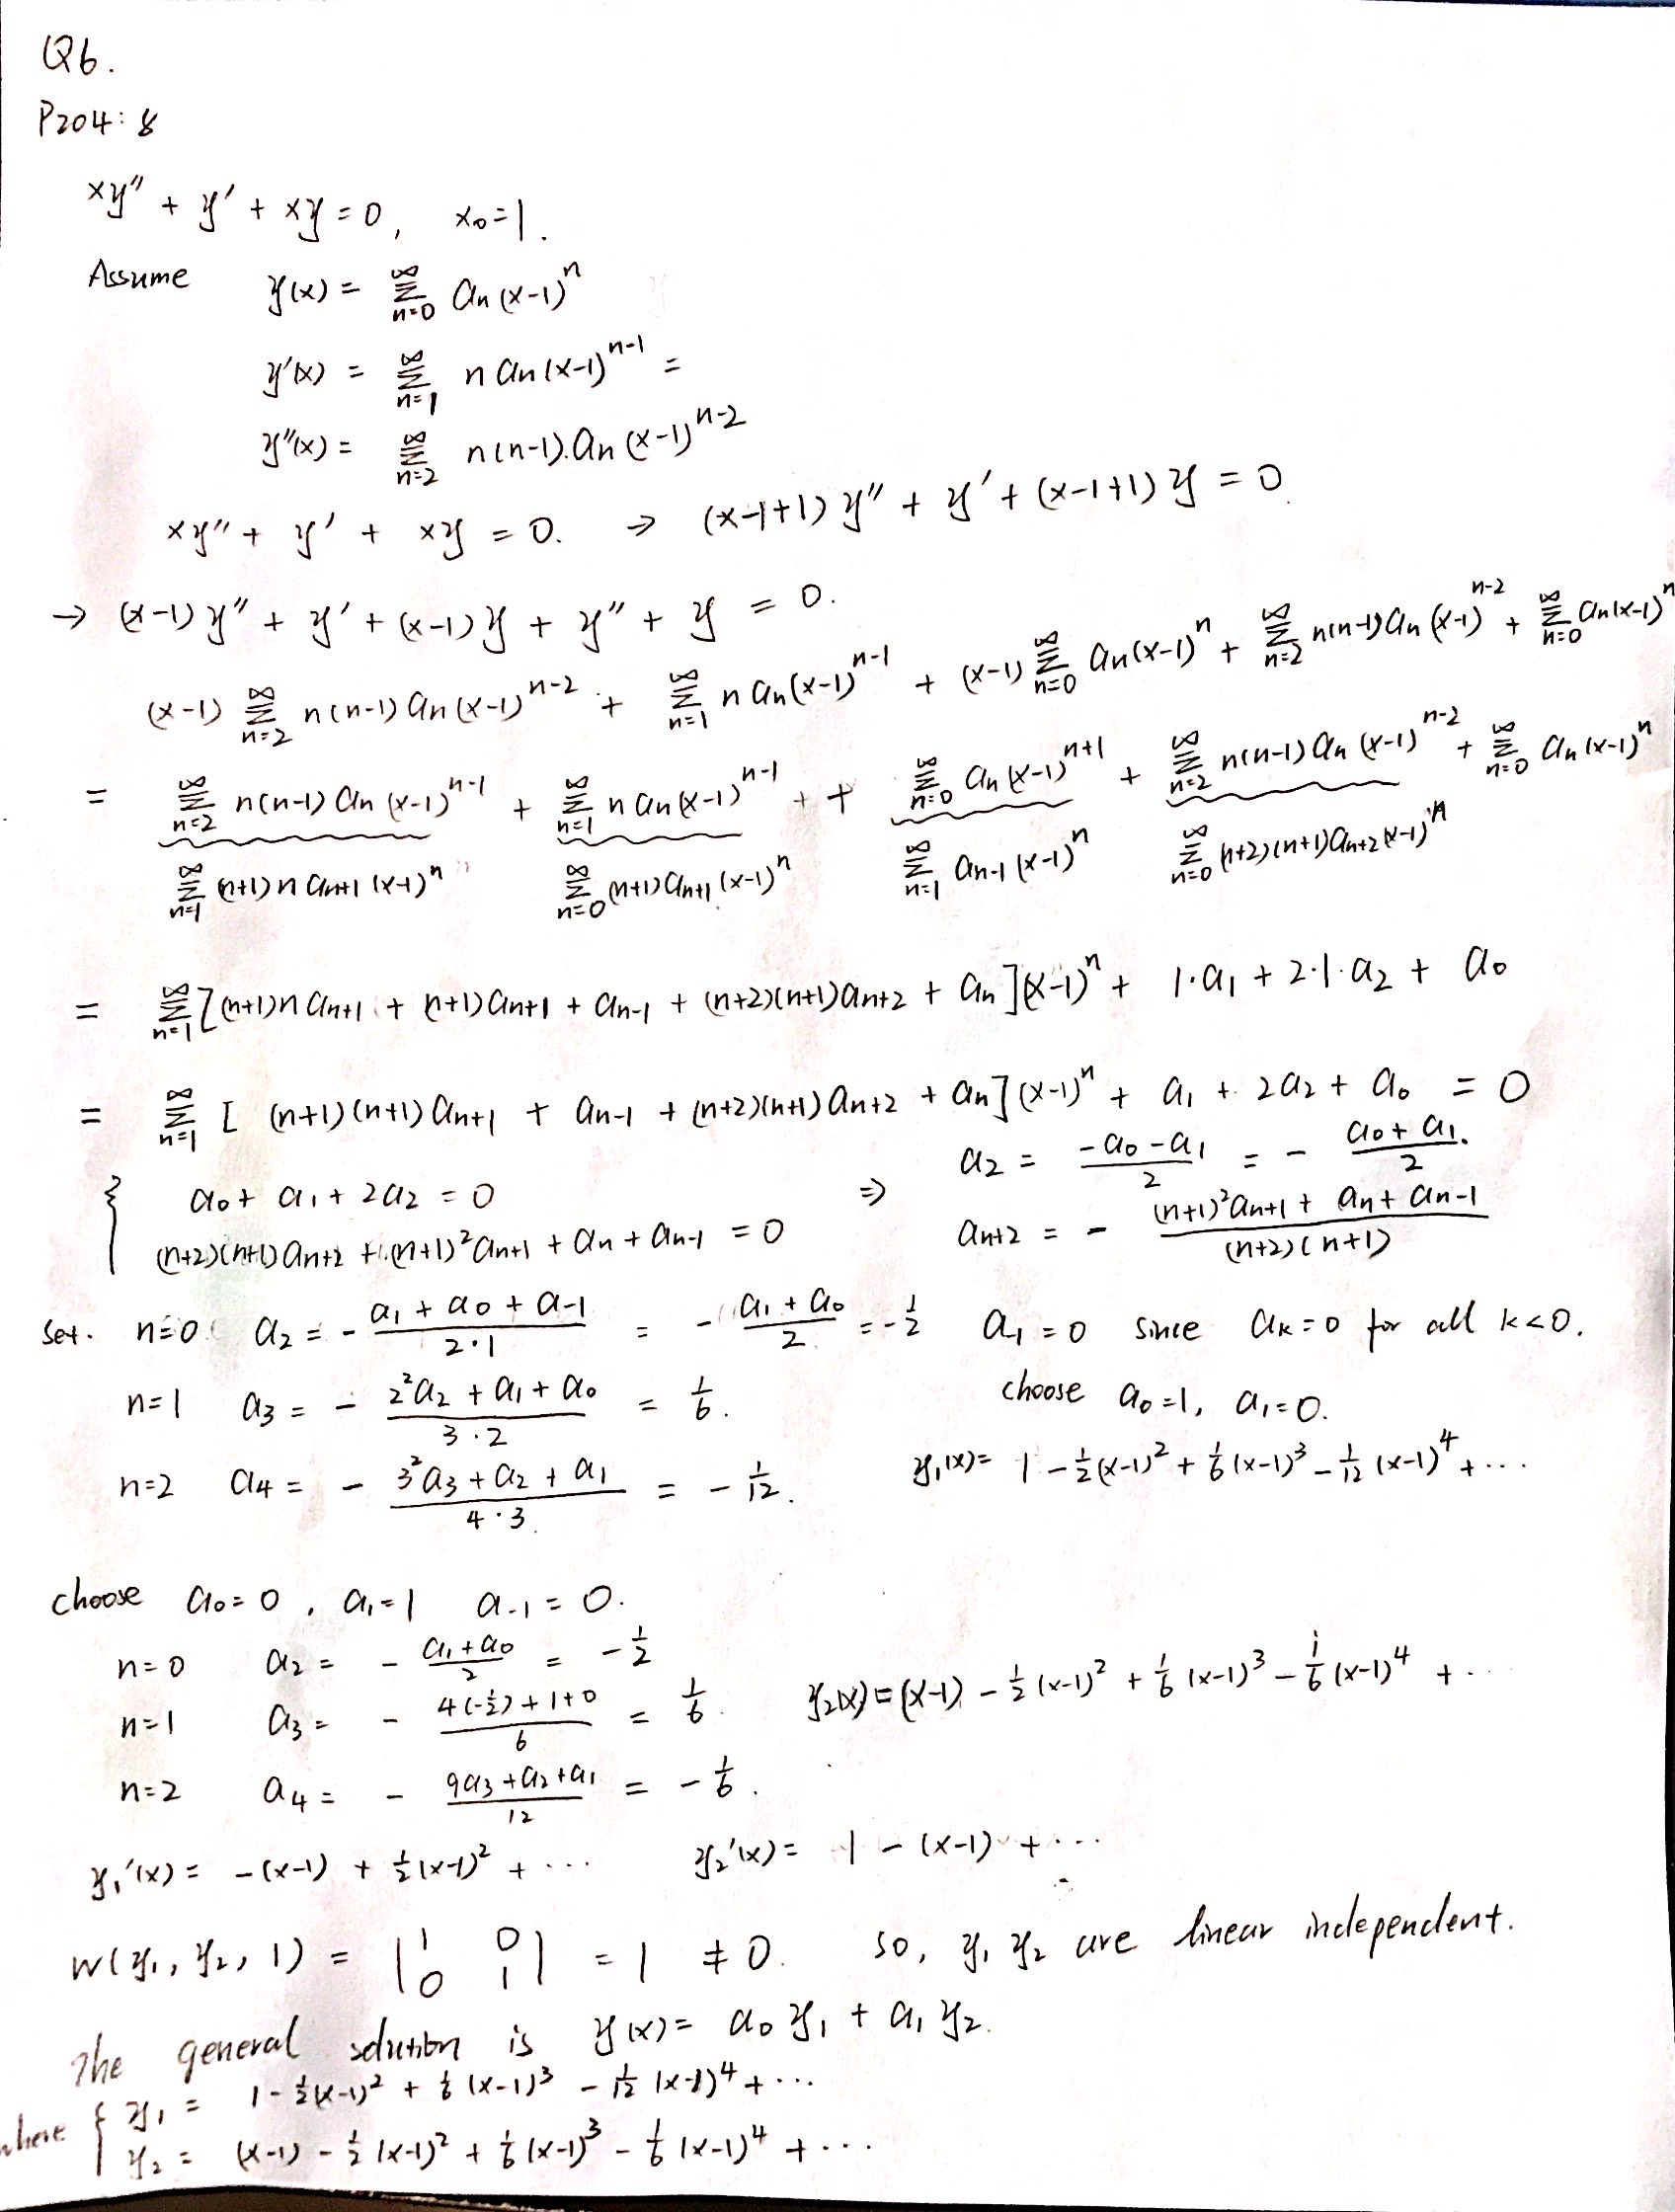 Q6.
P204: 8
xy'' + y' + xy = 0, x₀=1.
Assume y(x) = ∑_{n=0}^∞ aₙ(x-1)ⁿ
y'(x) = ∑_{n=1}^∞ n aₙ(x-1)^{n-1} =
y''(x) = ∑_{n=2}^∞ n(n-1).aₙ(x-1)^{n-2}
xy'' + y' + xy = 0. → (x-1+1) y'' + y' + (x-1+1) y = 0.
→ (x-1) y'' + y' + (x-1) y + y'' + y = 0.
(x-1) ∑_{n=2}^∞ n(n-1) aₙ(x-1)^{n-2} + ∑_{n=1}^∞ n aₙ(x-1)^{n-1} + (x-1) ∑_{n=0}^∞ aₙ(x-1)ⁿ + ∑_{n=2}^∞ n(n-1) aₙ(x-1)^{n-2} + ∑_{n=0}^∞ aₙ(x-1)ⁿ
= ∑_{n=2}^∞ n(n-1) aₙ(x-1)^{n-1} + ∑_{n=1}^∞ n aₙ(x-1)^{n-1} + + ∑_{n=0}^∞ aₙ(x-1)^{n+1} + ∑_{n=2}^∞ n(n-1) aₙ(x-1)^{n-2} + ∑_{n=0}^∞ aₙ(x-1)ⁿ
∑_{n=1}^∞ (n+1) n a_{n+1} (x-1)ⁿ ∑_{n=0}^∞ (n+1) a_{n+1} (x-1)ⁿ ∑_{n=1}^∞ a_{n-1} (x-1)ⁿ ∑_{n=0}^∞ (n+2)(n+1) a_{n+2} (x-1)ⁿ
= ∑_{n=1}^∞ [(n+1) n a_{n+1} + (n+1) a_{n+1} + a_{n-1} + (n+2)(n+1) a_{n+2} + aₙ](x-1)ⁿ + 1·a₁ + 2·1·a₂ + a₀
= ∑_{n=1}^∞ [ (n+1)(n+1) a_{n+1} + a_{n-1} + (n+2)(n+1) a_{n+2} + aₙ](x-1)ⁿ + a₁ + 2a₂ + a₀ = 0
{ a₀ + a₁ + 2a₂ = 0 ⇒ a₂ = (-a₀-a₁)/2 = - (a₀+a₁)/2.
(n+2)(n+1) a_{n+2} + (n+1)² a_{n+1} + aₙ + a_{n-1} = 0 a_{n+2} = - ((n+1)² a_{n+1} + aₙ + a_{n-1})/((n+2)(n+1))
Set. n=0 a₂ = - (a₁ + a₀ + a₋₁)/(2·1) = - (a₁ + a₀)/2 = -1/2 a₁ = 0 since aₖ = 0 for all k<0.
n=1 a₃ = - (2²a₂ + a₁ + a₀)/(3·2) = 1/6. choose a₀=1, a₁=0.
n=2 a₄ = - (3²a₃ + a₂ + a₁)/(4·3) = - 1/12. y₁(x) = 1 - 1/2 (x-1)² + 1/6 (x-1)³ - 1/12 (x-1)⁴ + ...
choose a₀=0, a₁=1 a₋₁ = 0.
n=0 a₂ = - (a₁+a₀)/2 = - 1/2
n=1 a₃ = - (4(-1/2)+1+0)/6 = 1/6. y₂(x) = (x-1) - 1/2 (x-1)² + 1/6 (x-1)³ - 1/6 (x-1)⁴ + ...
n=2 a₄ = - (9a₃+a₂+a₁)/12 = - 1/6.
y₁'(x) = -(x-1) + 1/2 (x-1)² + ... y₂'(x) = 1 - (x-1) + ...
W(y₁, y₂, 1) = |1 0; 0 1| = 1 ≠ 0. so, y₁ y₂ are linear independent.
The general solution is y(x) = a₀ y₁ + a₁ y₂.
where { y₁ = 1 - 1/2 (x-1)² + 1/6 (x-1)³ - 1/12 (x-1)⁴ + ...
y₂ = (x-1) - 1/2 (x-1)² + 1/6 (x-1)³ - 1/6 (x-1)⁴ + ...